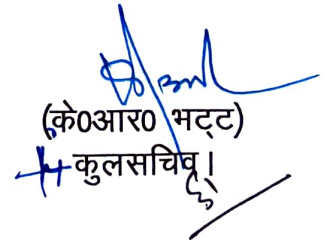 (के०आर० भट्ट)
कुलसचिव।